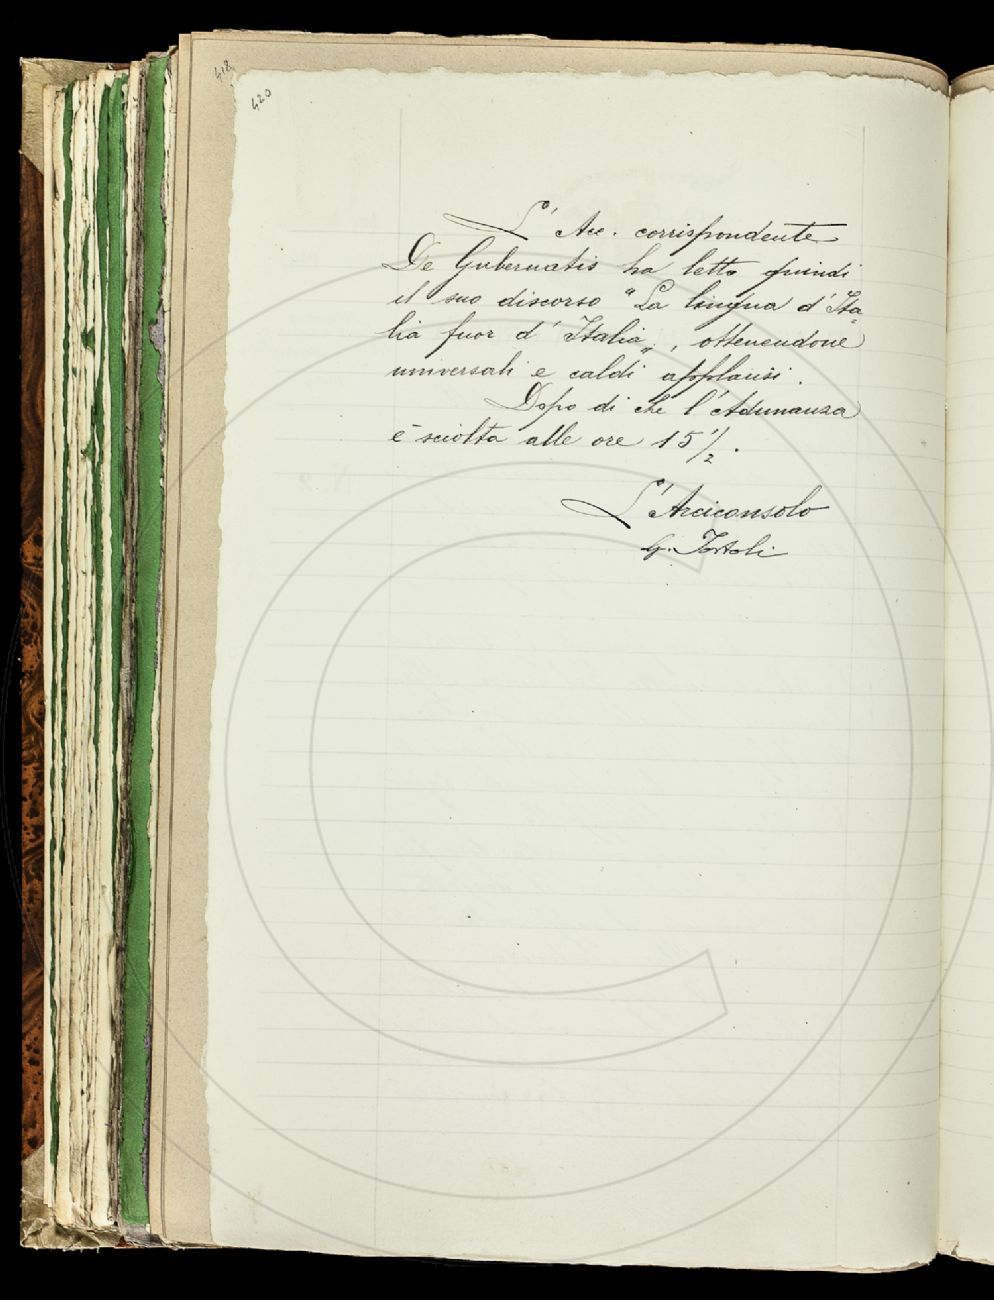 418
420
L' Acc. corrispondente
De Gubernatis ha letto quindi
il suo discorso "La lingua d'Ita=
lia fuor d'Italia„, ottenendone
universali e caldi applausi.
Dopo di che l'Adunanza
è sciolta alle ore 15 1/2.
L'Arciconsolo
G. Tortoli